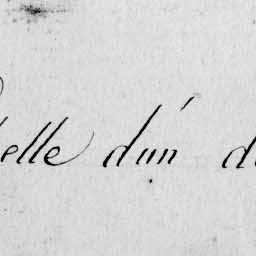 elle d'un d